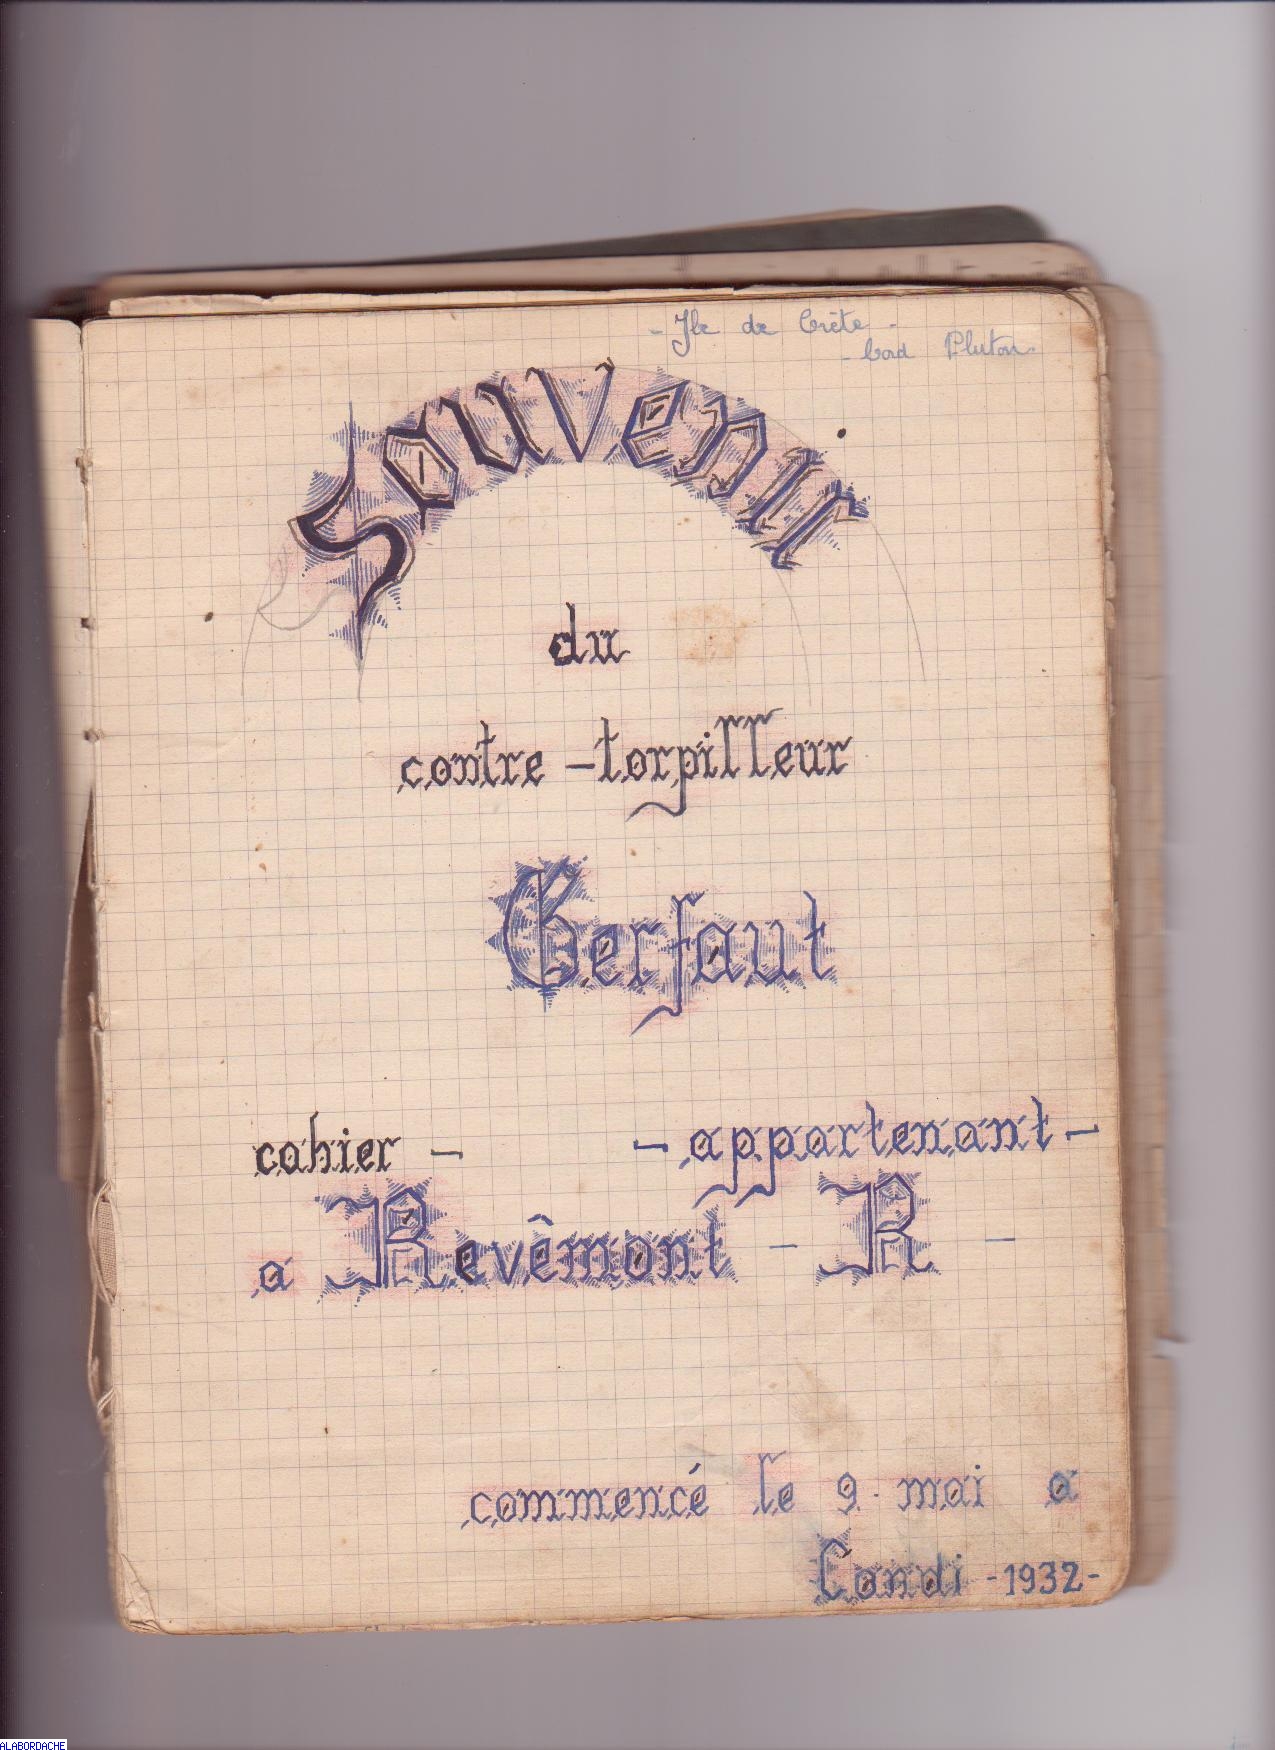 - Ile de Crète -
- bord Pluton
Souvenir
du
contre-torpilleur
Gerfaut
cahier - - appartenant -
a Revêmont - R -
commencé le 9. mai a
Candi -1932-
ALABORDACHE